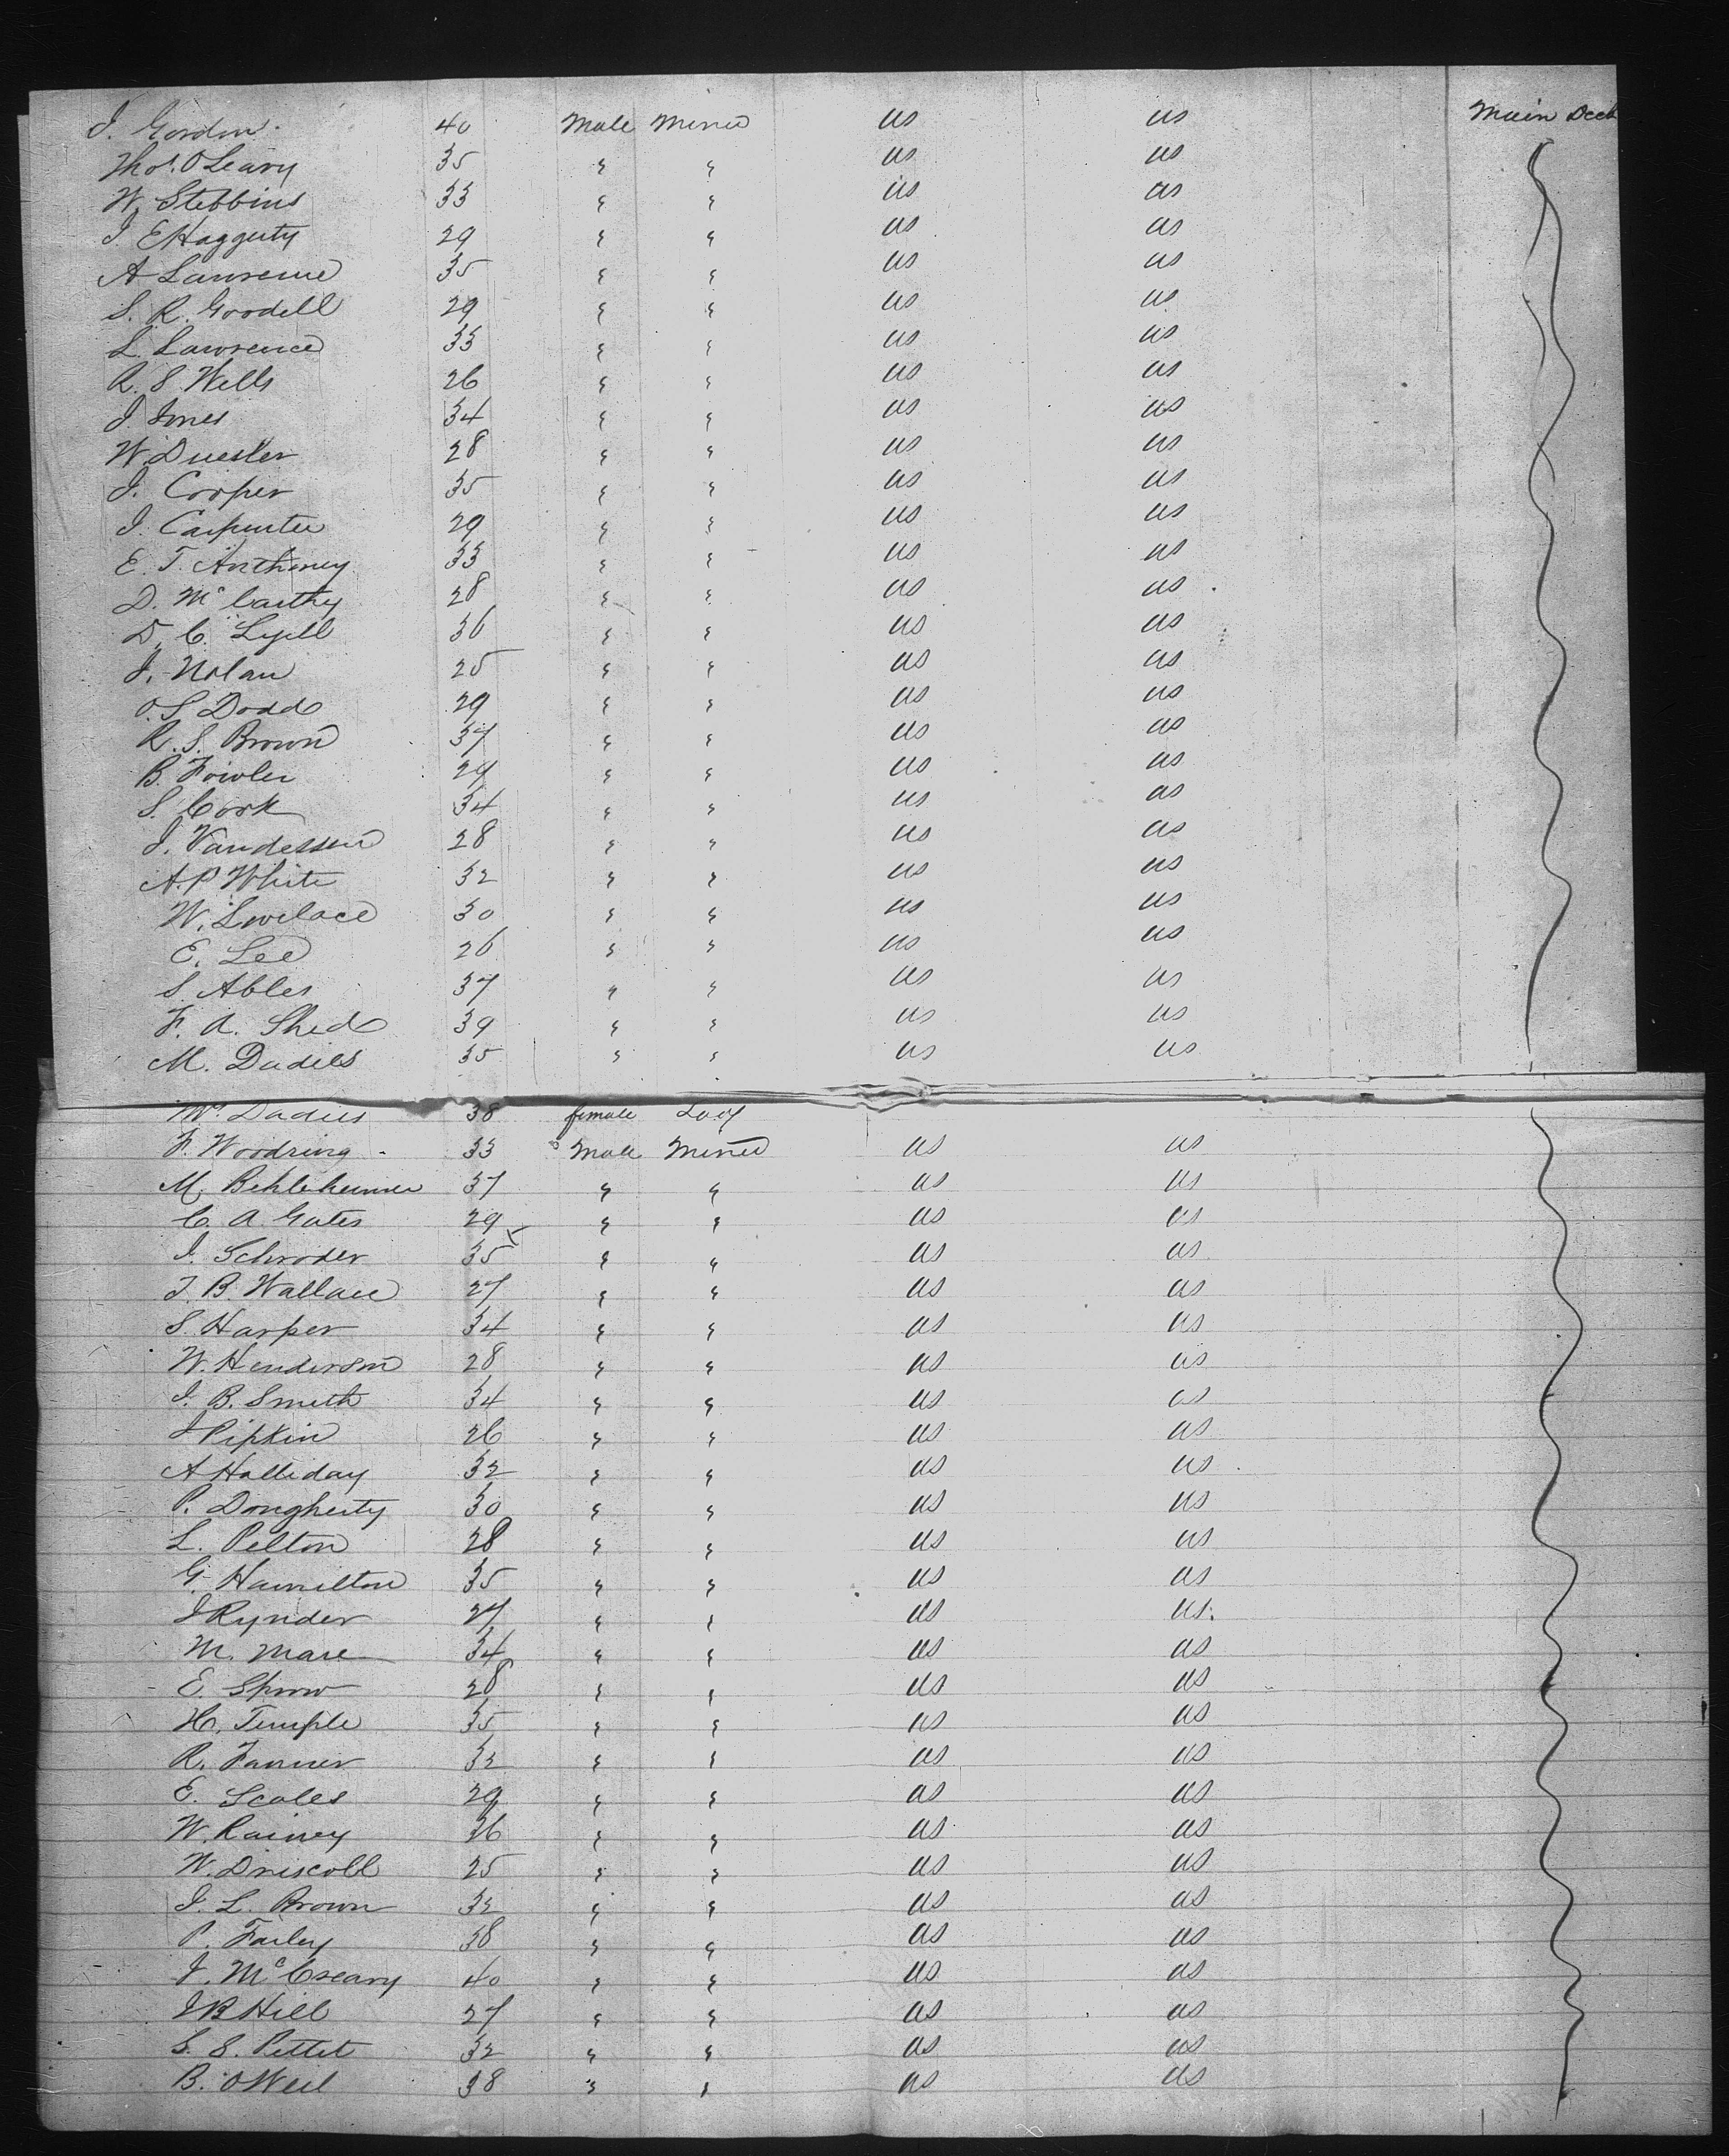 J. Gordon 40 Male Miner US US Main Deck
Thos. O'Leary 35 " " US US
W. Stebbins 33 " " US US
J E Haggerty 29 " " US US
A Lawrence 35 " " US US
S. R. Goodell 29 " " US US
L. Lawrence 33 " " US US
R. S Wells 26 " " US US
J. Jones 34 " " US US
W. Duesler 28 " " US US
J. Cooper 35 " " US US
J. Carpenter 29 " " US US
E. T. Anthoney 33 " " US US
D. McCarthy 28 " " US US
D. C. Lyell 36 " " US US
J. Nolan 25 " " US US
O. S Dodd 29 " " US US
R. S. Brown 37 " " US US
B. Fowler 27 " " US US
S. Cook 34 " " US US
J. Vandessen 28 " " US US
A. P White 32 " " US US
W. Lovelace 30 " " US US
E. Lee 26 " " US US
S. Ables 37 " " US US
F. A. Shed 39 " " US US
M. Dadies 35 " " US US
Mrs Dadies 38 female Lady
F. Woodring 33 Male Miner US US
M. 37 " " US US
C. A Gates 29 " " US US
J. Schroder 35 " " US US
J. B. Wallace 27 " " US US
S. Harper 34 " " US US
W. Henderson 28 " " US US
J. B. Smith 34 " " US US
J Pipkin 26 " " US US
A Halliday 32 " " US US
P. Dougherty 30 " " US US
L. Pelton 28 " " US US
G. Hamilton 35 " " US US
J Rynder 27 " " US US
M. Mare 34 " " US US
E. Sprow 28 " " US US
H. Temple 35 " " US US
R. Fanner 32 " " US US
E. Scales 29 " " US US
W. Rainey 36 " " US US
W. Driscoll 25 " " US US
J. L. Brown 32 " " US US
P. Farley 38 " " US US
J. McCreary 40 " " US US
J B Hill 27 " " US US
S. S. Pettet 32 " " US US
B. O'Neil 38 " " US US